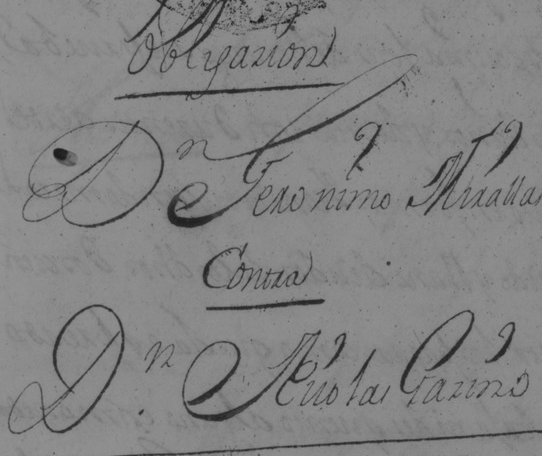 Obligazion
Dn Geronimo Mirallas
Contra
Dn Nicolas Garino